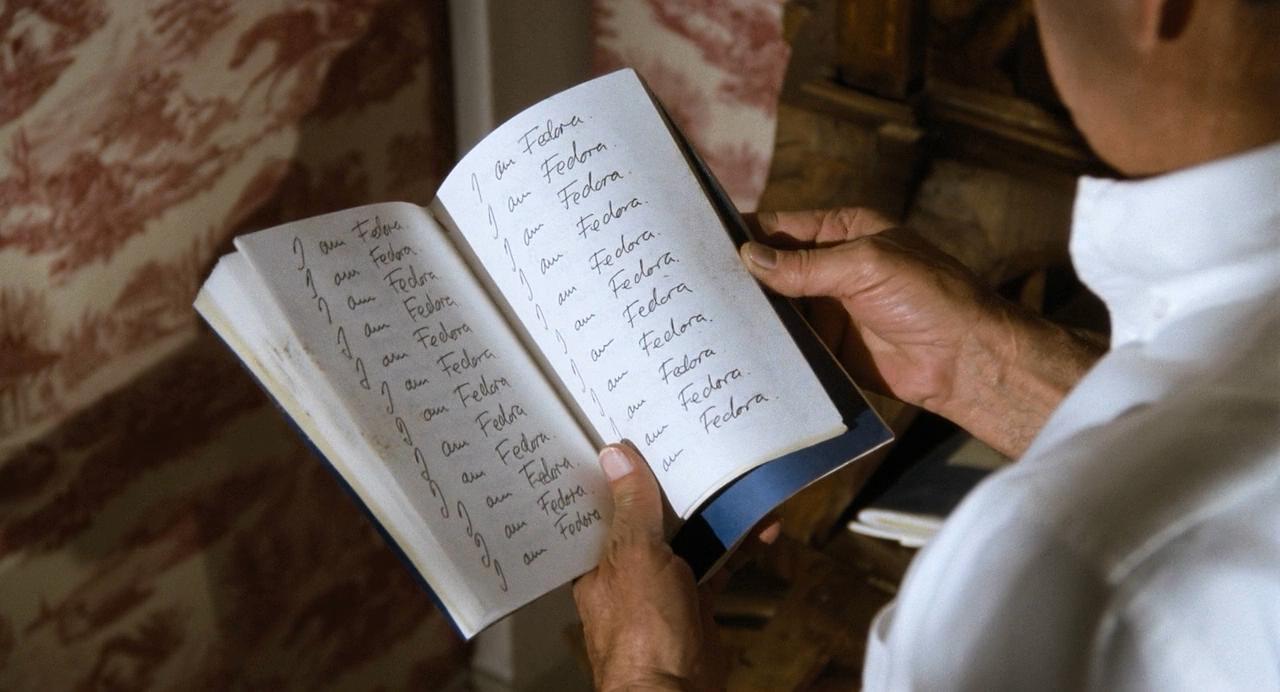 I am Fedora.
I am Fedora.
I am Fedora.
I am Fedora.
I am Fedora.
I am Fedora.
I am Fedora.
I am Fedora.
I am Fedora.
I am Fedora.
I am Fedora.
I am Fedora
I am Fedora.
I am Fedora.
I am Fedora.
I am Fedora.
I am Fedora.
I am Fedora.
I am Fedora.
I am Fedora.
I am Fedora.
am Fedora.
am Fedora.